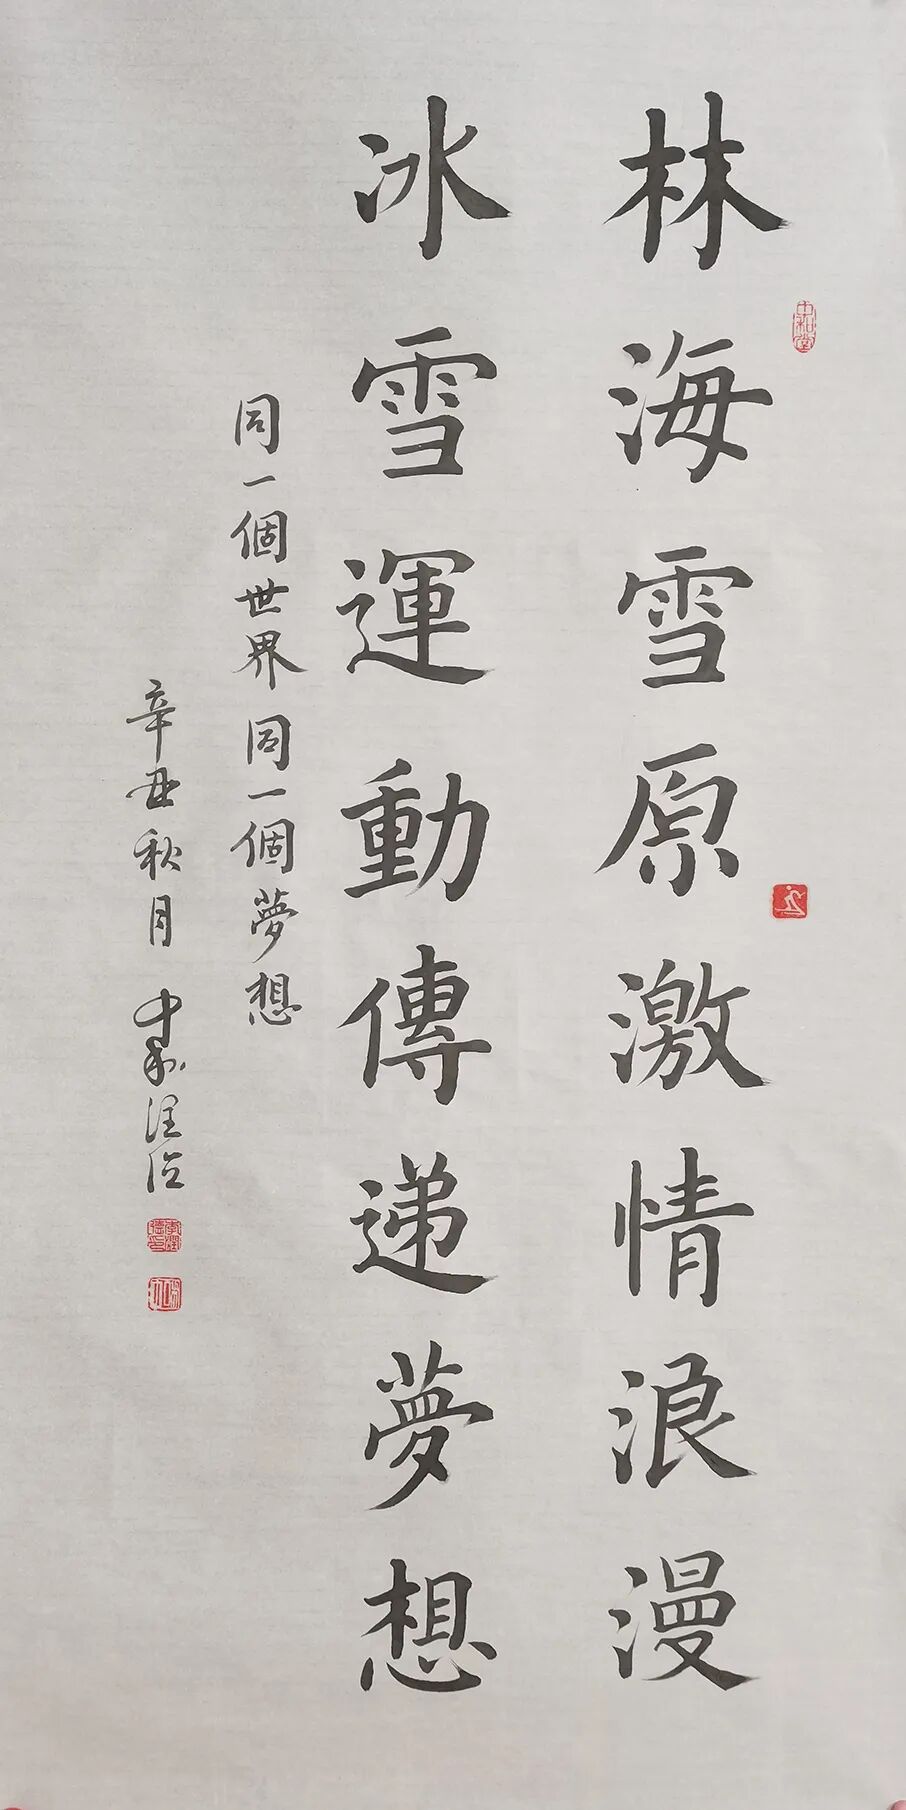 林海雪原激情浪漫
冰雪運動傳遞夢想
同一個世界同一個夢想
辛丑秋月
中和堂